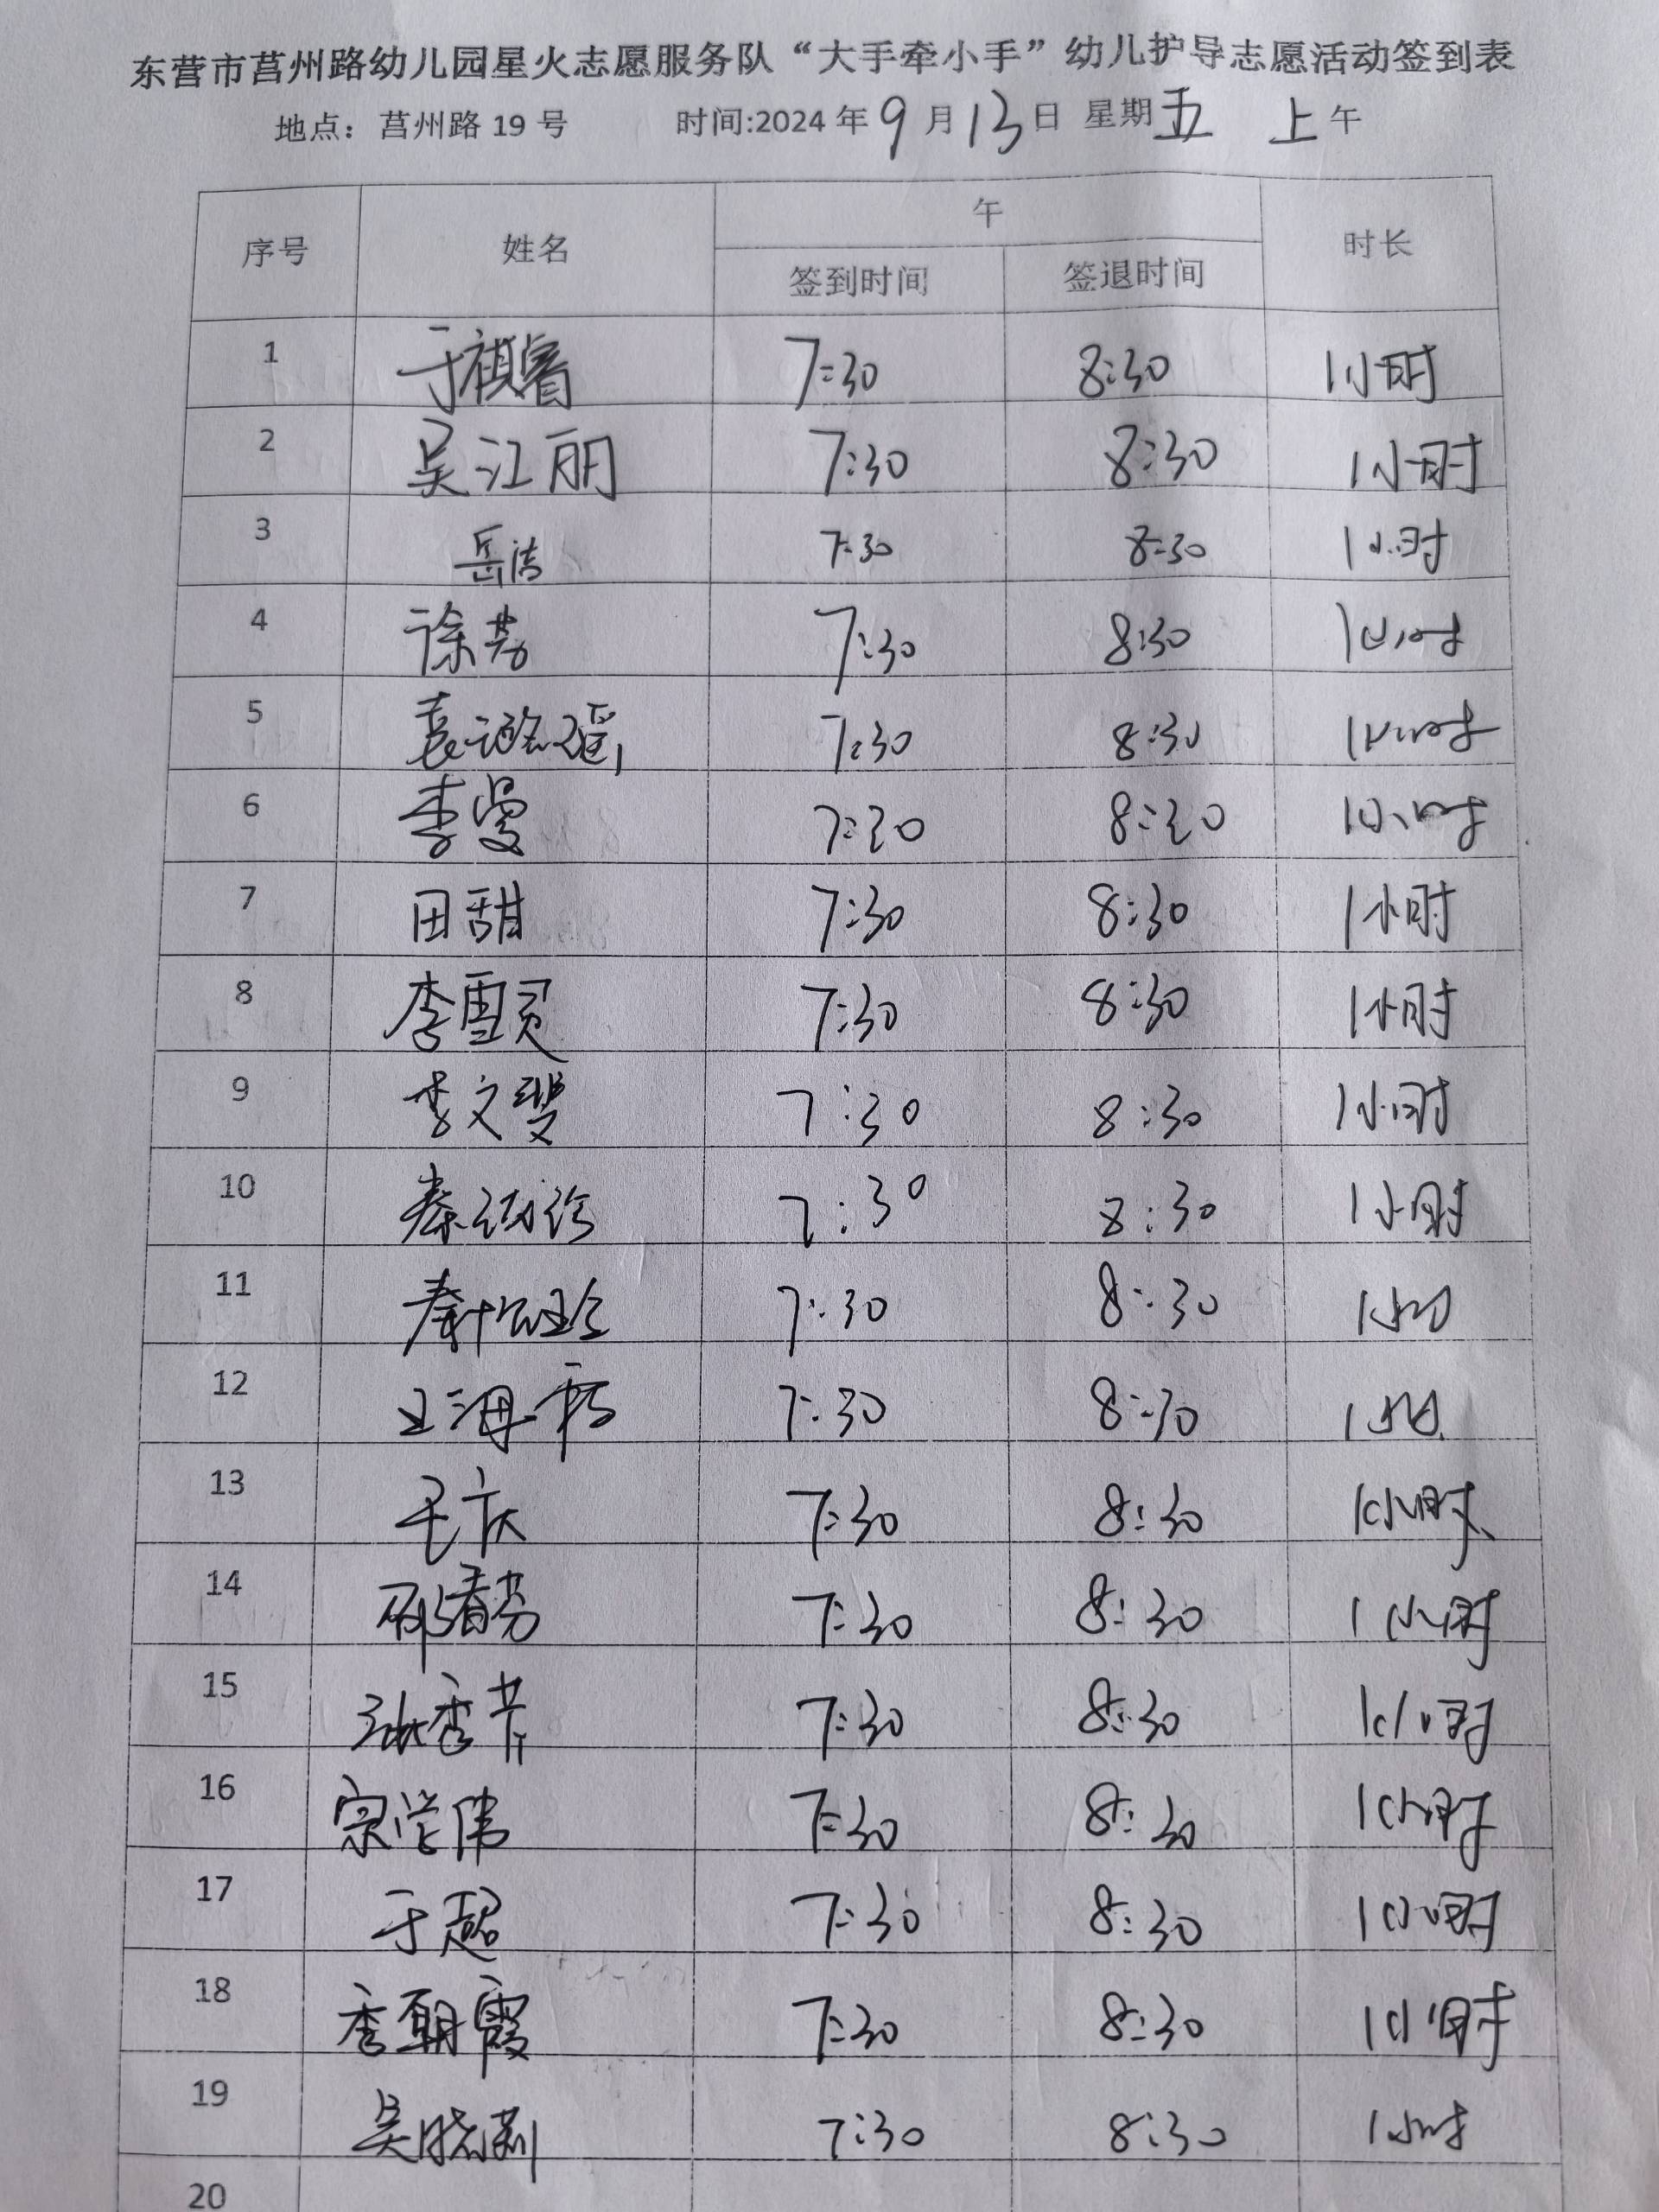 东营市莒州路幼儿园星火志愿服务队“大手牵小手”幼儿护导志愿活动签到表
地点：莒州路 19 号 时间:2024 年 9 月 13 日 星期 五 上 午
序号 姓名 午 时长
签到时间 签退时间
1 于祺睿 7:30 8:30 1小时
2 吴江丽 7:30 8:30 1小时
3 岳洁 7:30 8:30 1小时
4 徐芳 7:30 8:30 1小时
5 袁潞瑶 7:30 8:30 1小时
6 李曼 7:30 8:30 1小时
7 田甜 7:30 8:30 1小时
8 李雪灵 7:30 8:30 1小时
9 李文斐 7:30 8:30 1小时
10 秦 7:30 8:30 1小时
11 秦 7:30 8:30 1小时
12 王海 7:30 8:30 1小时
13 毛庆 7:30 8:30 1小时
14 邴春芳 7:30 8:30 1小时
15 张秀芹 7:30 8:30 1小时
16 宗学伟 7:30 8:30 1小时
17 于超 7:30 8:30 1小时
18 李朝霞 7:30 8:30 1小时
19 吴晓莉 7:30 8:30 1小时
20